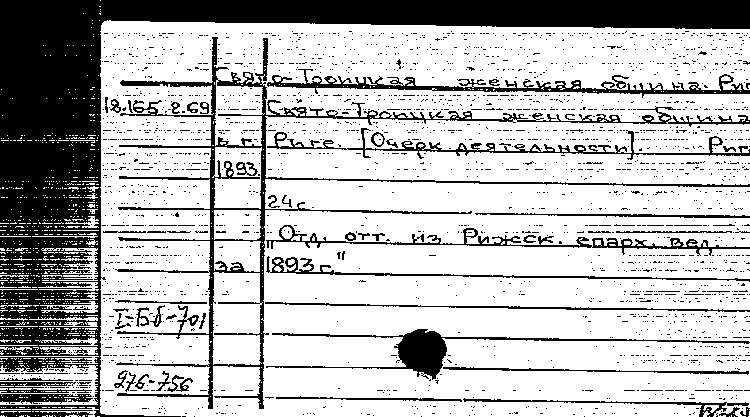 Свято-Троицкая женская община. Риг
18.165.2.69 Свято-Троицкая женская община
в г. Риге [Очерк деятельности]. Риг
1893
24 с.
„Отд. отт. из Рижск. епарх. вед.
за 1893 г."
I-Бб-701
276-756